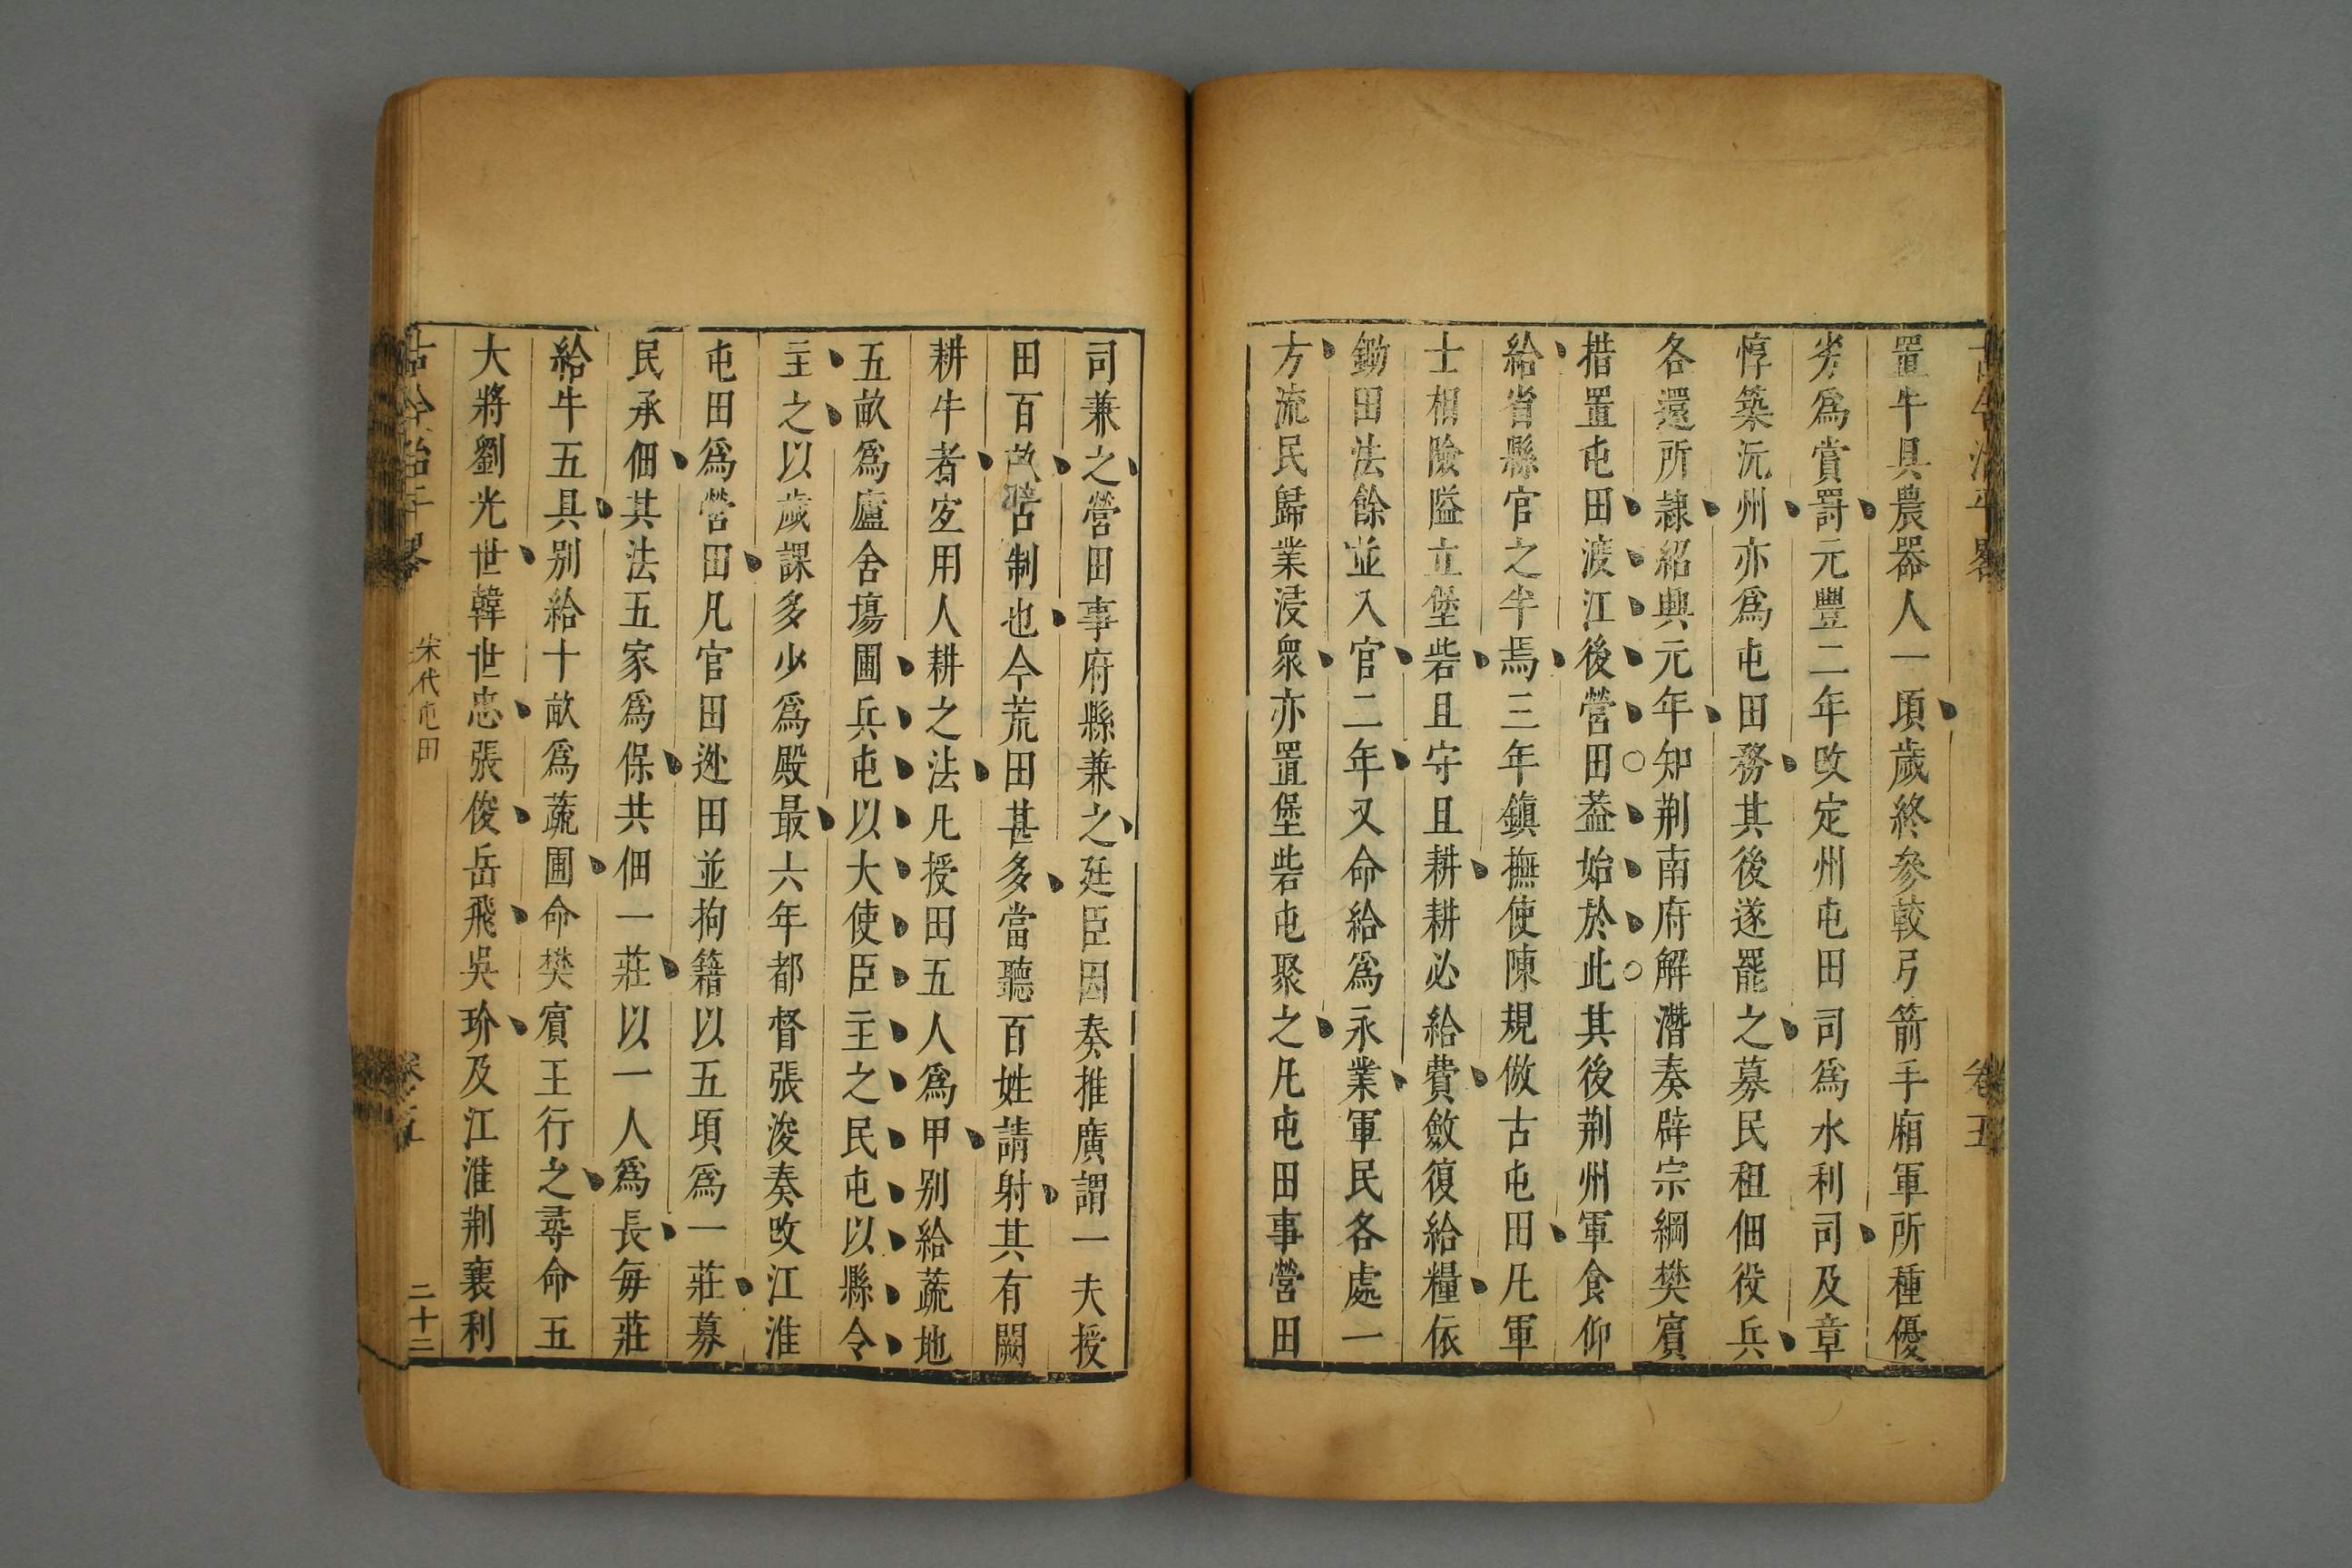 置牛具農器人一頃歲終參較弓箭手廂軍所種優
劣爲賞罰元豐二年改定州屯田司爲水利司及章
惇築沅州亦爲屯田務其後遂罷之募民租佃役兵
各還所隷紹興元年知荆南府解潛奏辟宗綱樊賔
措置屯田渡江後營田葢始於此其後荆州軍食仰
給省縣官之半焉三年鎭撫使陳規倣古屯田凡軍
士相險隘立堡砦且守且耕耕必給費斂復給糧依
鋤田法餘並入官二年又命給爲永業軍民各處一
方流民歸業浸衆亦置堡砦屯聚之凡屯田事營田
卷五
司兼之營田事府縣兼之廷臣因奏推廣謂一夫授
田百畝古制也今荒田甚多當聽百姓請射其有闕
耕牛者宜用人耕之法凡授田五人爲甲别給蔬地
五畝爲廬舍塲圃兵屯以大使臣主之民屯以縣令
主之以歲課多少爲殿最六年都督張浚奏改江淮
屯田爲營田凡官田逃田並拘籍以五頃爲一莊募
民承佃其法五家爲保共佃一莊以一人爲長每莊
給牛五具别給十畝爲蔬圃命樊賔王行之尋命五
大將劉光世韓世忠張俊岳飛吳玠及江淮荆襄利
宋代屯田
二十三